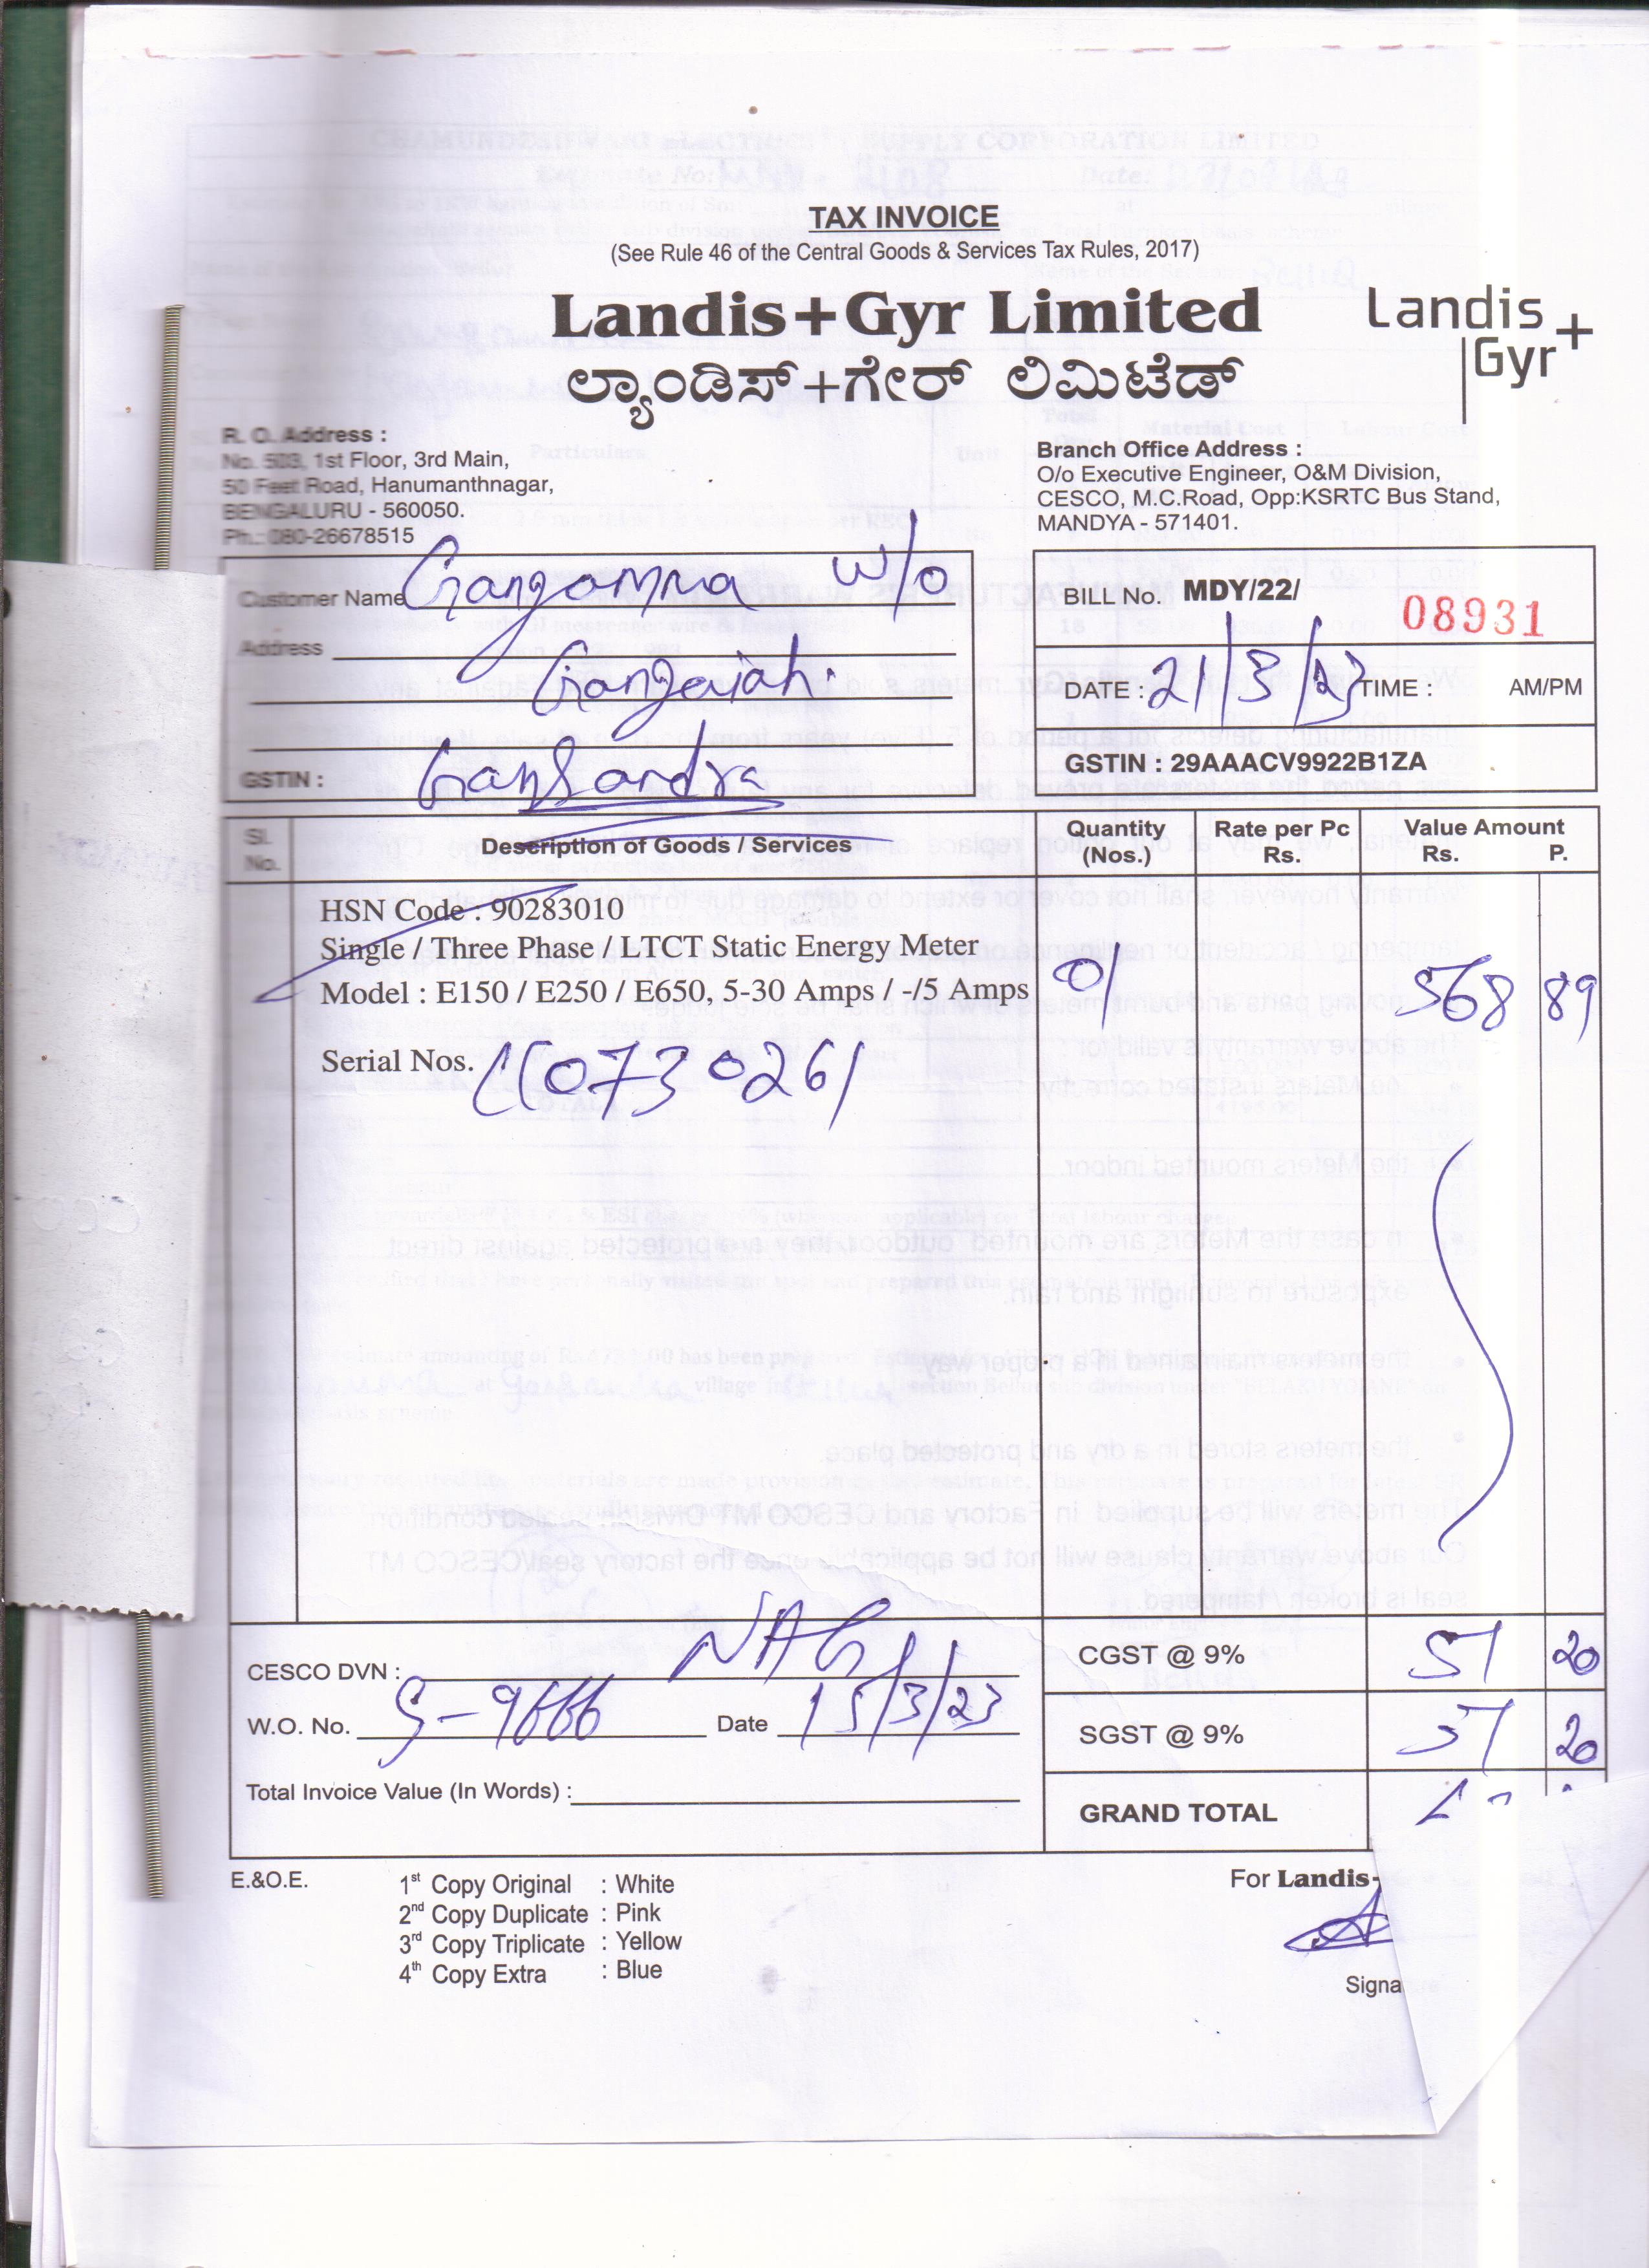 TAX INVOICE
(See Rule 46 of the Central Goods & Services Tax Rules, 2017)
Landis+Gyr Limited
ಲ್ಯಾಂಡಿಸ್+ಗೇರ್ ಲಿಮಿಟೆಡ್
Landis+
Gyr
R. O. Address :
No. 503, 1st Floor, 3rd Main,
50 Feet Road, Hanumanthnagar,
BENGALURU - 560050.
Ph.: 080-26678515
Branch Office Address :
O/o Executive Engineer, O&M Division,
CESCO, M.C.Road, Opp:KSRTC Bus Stand,
MANDYA - 571401.
Customer Name Gangamma W/o
Address Gangaiah.
GSTIN :
BILL No. MDY/22/ 08931
DATE : 21/3/23 TIME : AM/PM
GSTIN : 29AAACV9922B1ZA
Sl. No. Description of Goods / Services Quantity (Nos.) Rate per Pc Rs. Value Amount Rs. P.
HSN Code : 90283010
Single / Three Phase / LTCT Static Energy Meter
Model : E150 / E250 / E650, 5-30 Amps / -/5 Amps 01 568 89
Serial Nos.
CESCO DVN : NAG
W.O. No. Date 15/3/23
Total Invoice Value (In Words) :
CGST @ 9% 51 20
SGST @ 9% 51 20
GRAND TOTAL
E.&O.E.
1st Copy Original : White
2nd Copy Duplicate : Pink
3rd Copy Triplicate : Yellow
4th Copy Extra : Blue
For Landis
Signa